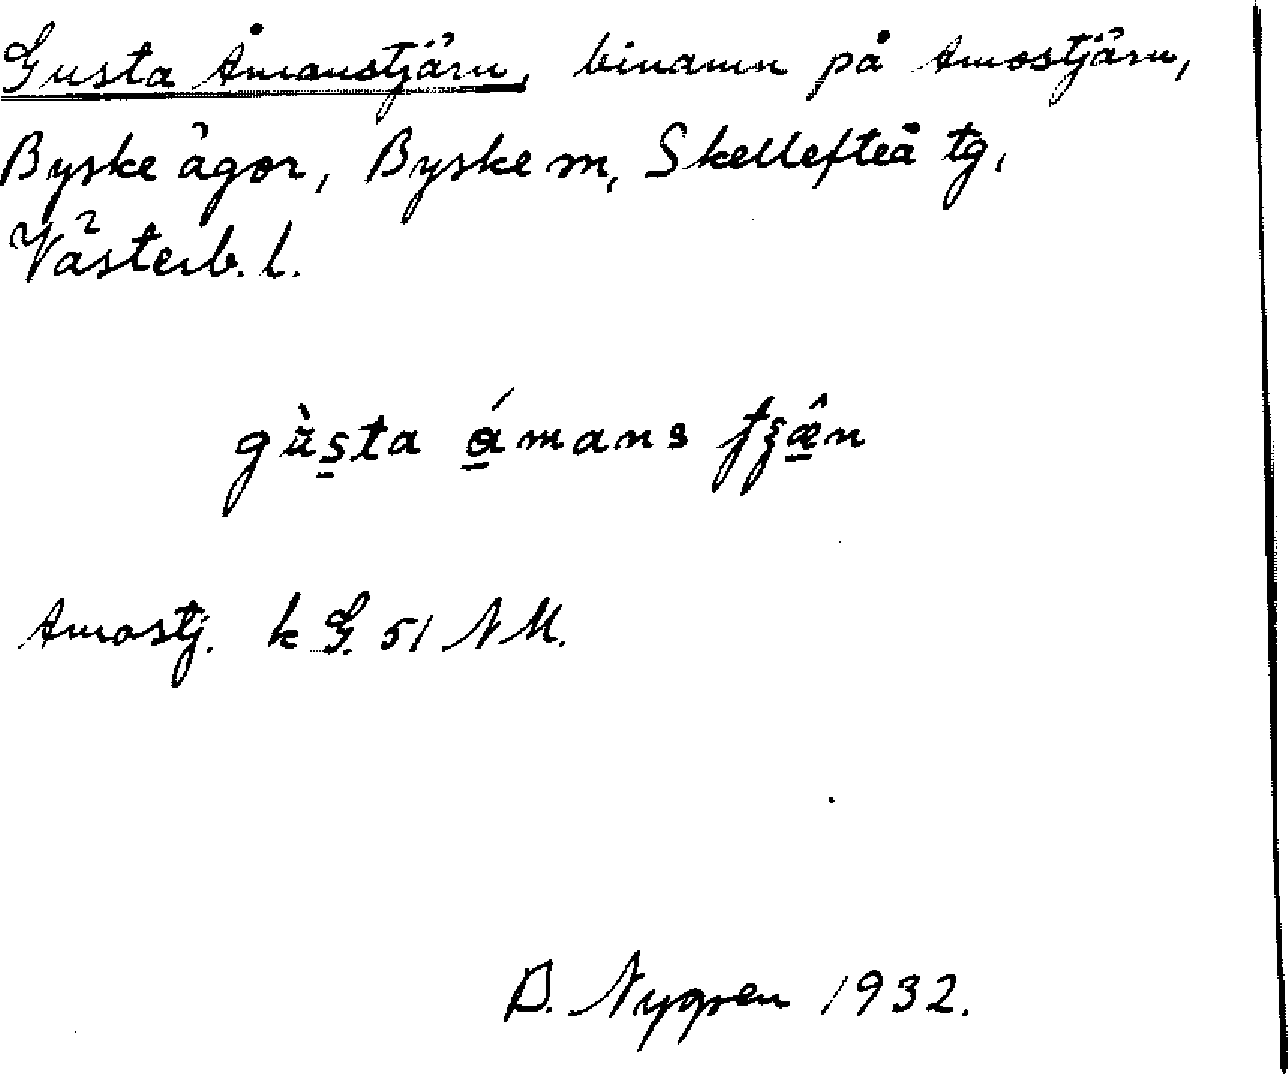 Gusta Åmanstjärn, binamn på Amostjärn,
Byske ägor, Byske m, Skellefteå tg,
Västerb. l.
gùsta ámans tjæ̂n
Amostj. k G. 51 NM.
D. Nygren 1932.